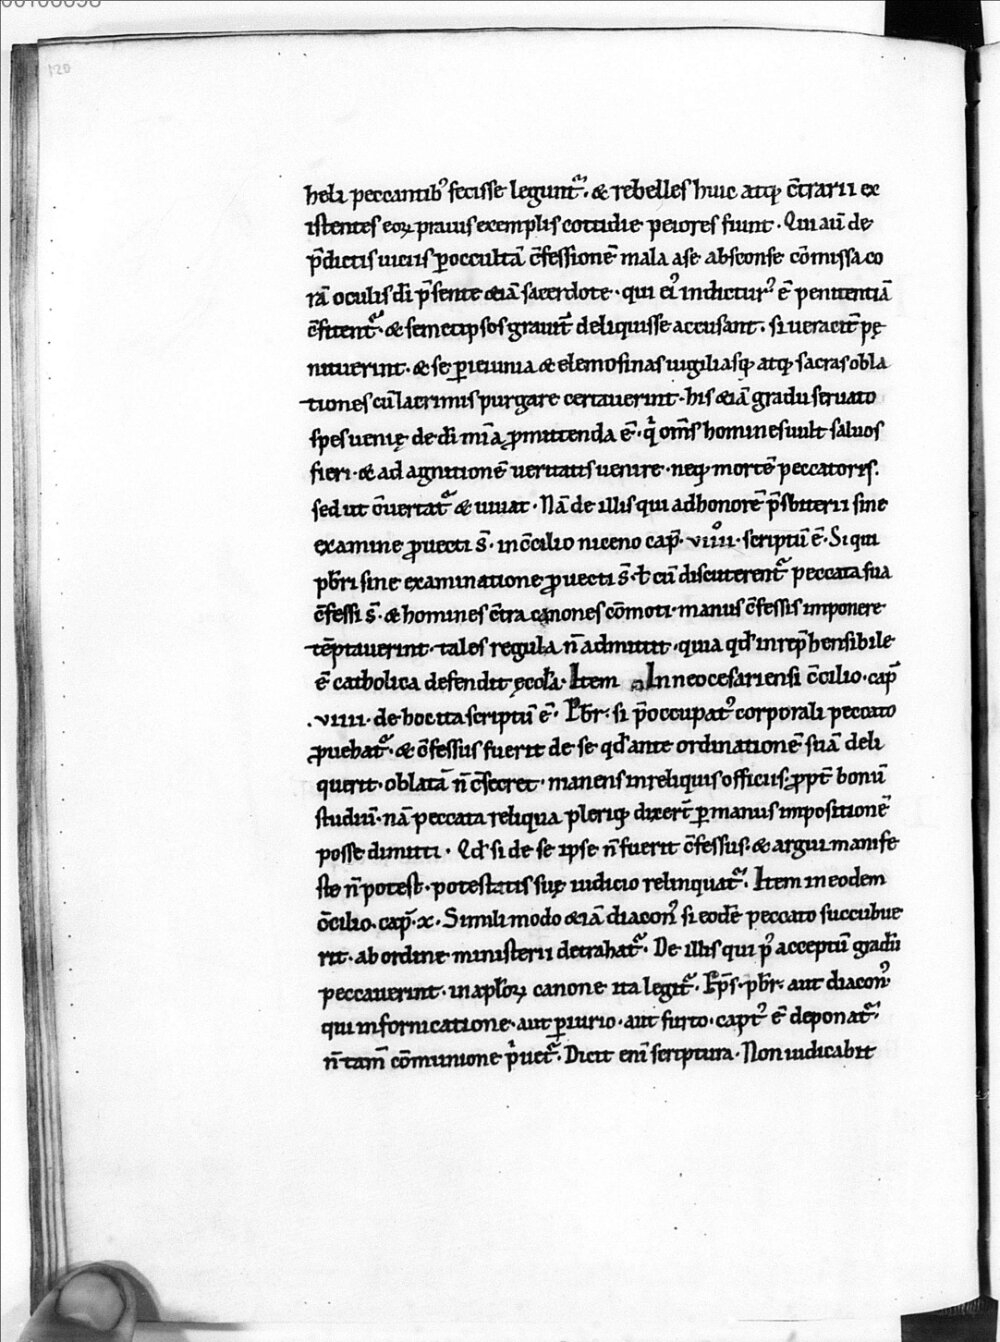 120
heli peccantib᾽ fecisse legunt᷑. & rebelles huic atq; c̄trarii ex
istentes eoꝝ prauis exemplis cottidie peiores fiunt. Qui aū de
p̄dictis uiciis ꝑ occultā c̄fessionē mala a se absconse cōmissa co
rā oculis dī p̄sente &iā sacerdote. qui ei᾽ indictur᾽ ē penitentiā
c̄fitent᷑. & semetipsos grauit̄ deliquisse accusant. si ueracit̄ pę
nituerint. & se ꝑ ieiunia & elemosinas uigiliasq; atq; sacras obla
tiones cū lacrimis purgare certauerint. his &iā gradu seruato
spes uenię de dī mīa ꝓmittenda ē. qͥ om̄s homines uult saluos
fieri. & ad agnitionē ueritatis uenire. neq; mortē peccatoris.
sed ut c̄uertat᷑ & uiuat. Nā de illis qui ad honorē p̄sbiterii sine
examine ꝓuecti s̄. in c̄cilio niceno cap̄. viiiiͦ. scriptū ē. Si qui
pb̄ri sine examinatione ꝓuecti s̄. ł cū discuterent᷑ peccata sua
c̄fessi s̄. & homines c̄tra canones cōmoti. manus c̄fessis imponere
tēptauerint. tales regula n̄ admittit. quia qd̄ inrep̄hensibile
ē catholica defendit ęccł̄a. Item In neocesariensi c̄cilio. cap̄
.viiii. de hoc ita scriptū ē. Pb̄r. si p̄occupat᾽ corporali peccato
ꝓuehat᷑. & c̄fessus fuerit de se qd̄ ante ordinationē suā deli
querit. oblatā n̄ c̄secret. manens in reliquis officiis. ꝓpt̄ bonū
studiū. nā peccata reliqua pleriq; dixert̄ ꝑ manus impositionē
posse dimitti. Qd̄ si de se ipse n̄ fuerit c̄fessus. & argui manife
ste n̄ potest. potestatis suę iudicio relinquat᷑. Item in eodem
c̄cilio. cap̄. x. Simili modo &iā diacon᾽ si eodē peccato succubue
rit. ab ordine ministerii detrahat᷑. De illis qui p᾽ acceptū gradū
peccauerint. in apl̄oꝝ canone ita legit᷑. Ep̄s. pb̄r. aut diacon᾽
qui in fornicatione. aut ꝑiurio. aut furto. capt᾽ ē deponat᷑.
n̄ tam̄ cōmunione pͥuet᷑. Dicit enī scriptura. Non iudicabit